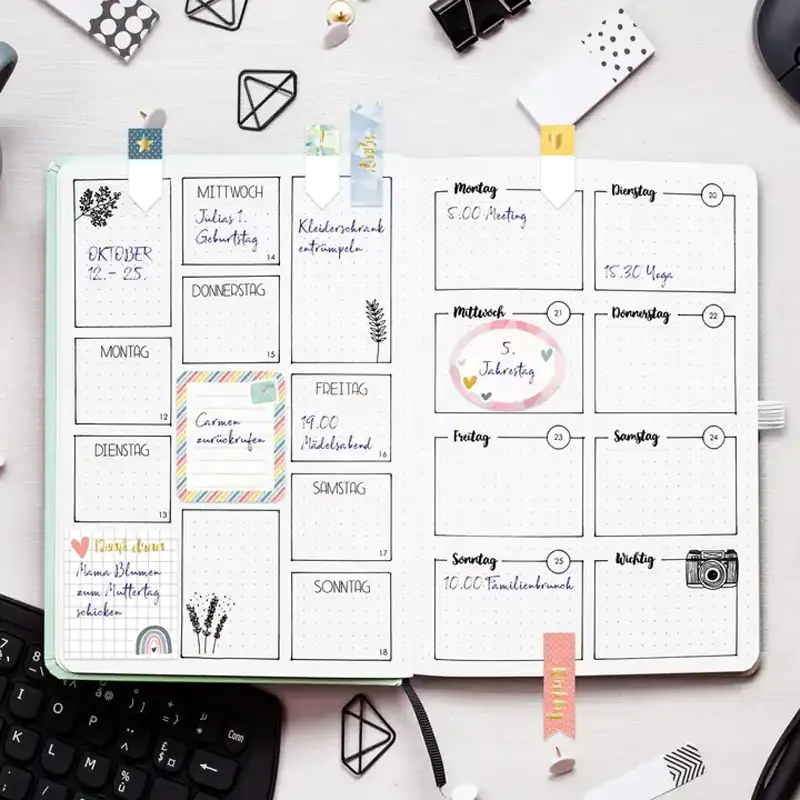 OKTOBER
12.- 25.
MONTAG
12
DIENSTAG
13
Denk dran
Mama Blumen
zum Muttertag
schicken
MITTWOCH
Julias 1.
Geburtstag
14
DONNERSTAG
15
Carmen
zurückrufen
Kleiderschrank
entrümpeln
FREITAG
19.00
Mädelsabend
16
SAMSTAG
17
SONNTAG
18
Montag
8.00 Meeting
Dienstag
20
15.30 Yoga
Mittwoch
21
5.
Jahrestag
Donnerstag
22
Freitag
23
Samstag
24
Sonntag
25
10.00 Familienbrunch
Wichtig
Wichtig
7
8
I
O
P
K
L
M
Conn